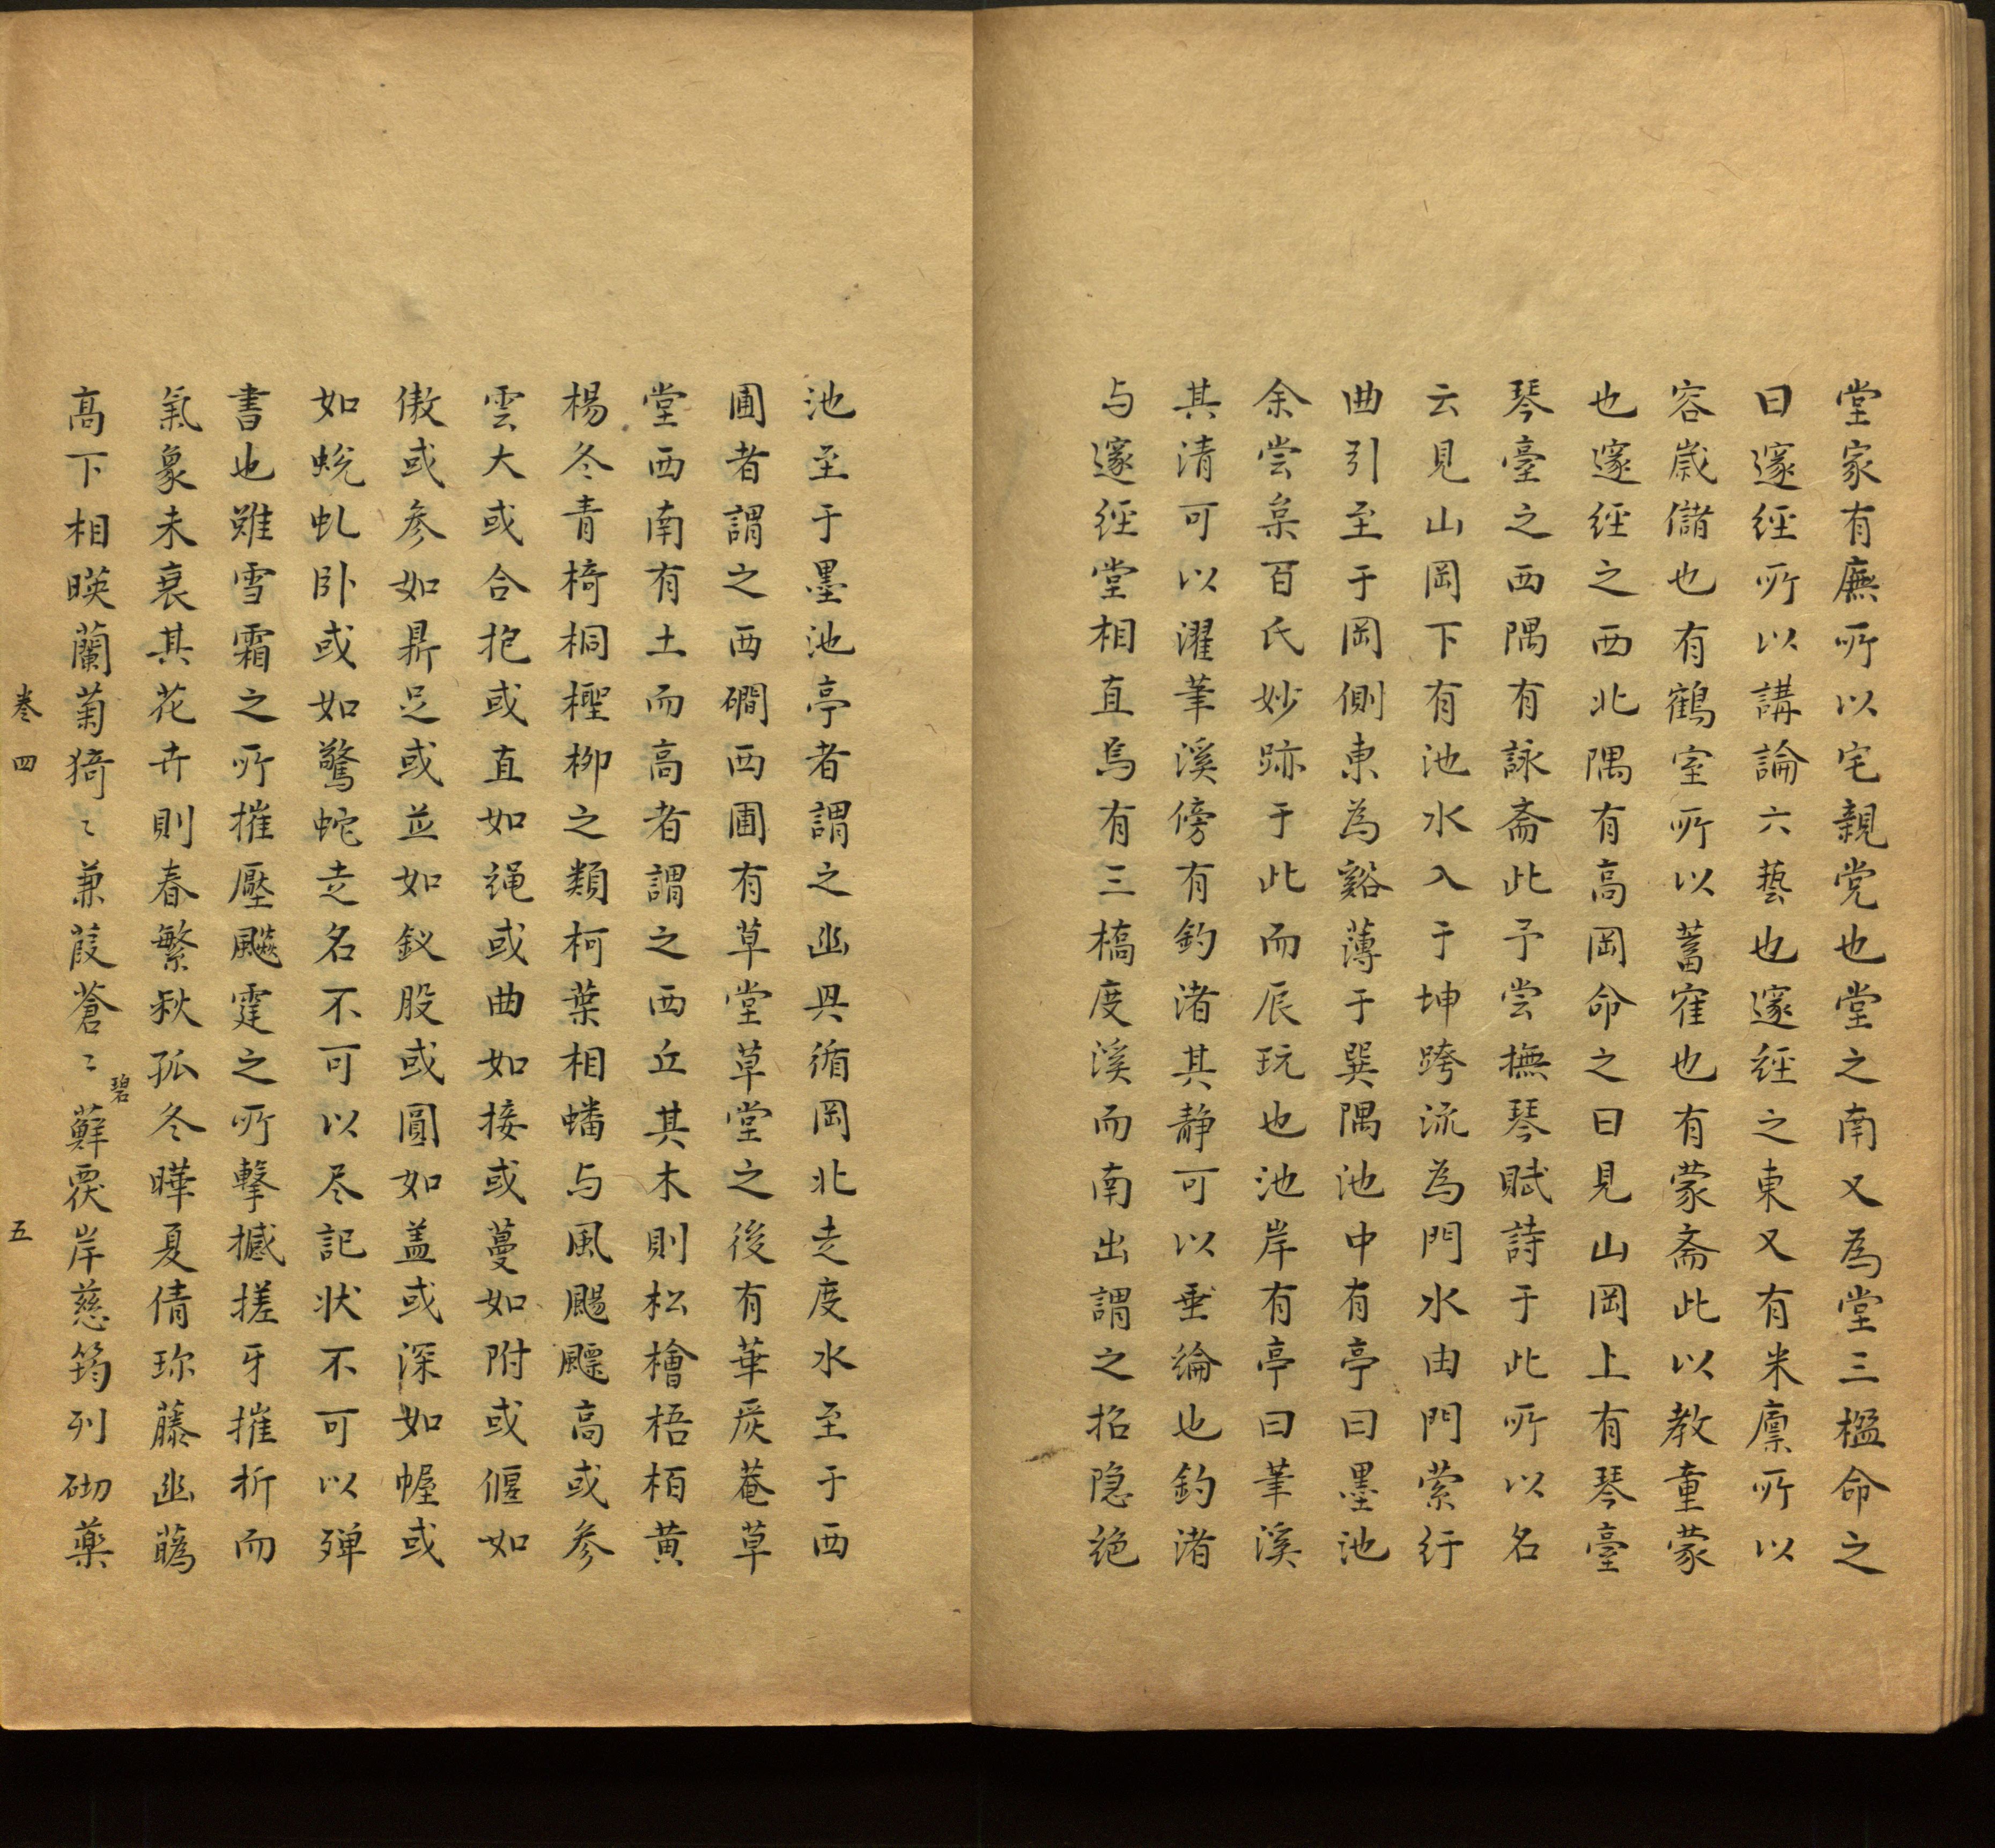 堂家有廡所以宅親党也堂之南又為堂三楹命之
曰邃經所以講論六藝也邃經之東又有米廪所以
容歳儲也有鶴室所以蓄隺也有蒙斋此以教童蒙
也邃經之西北隅有高岡命之曰見山岡上有琴臺
琴臺之西隅有詠斋此予尝撫琴賦詩于此所以名
云見山岡下有池水入于坤跨流為門水由門萦行
曲引至于岡側東為谿薄于巽隅池中有亭曰墨池
余尝枲百氏妙跡于此而辰玩也池岸有亭曰筆溪
其清可以濯筆溪傍有釣渚其静可以垂綸也釣渚
与邃經堂相直焉有三橋度溪而南出謂之招隐绝
池至于墨池亭者謂之幽興循岡北走度水至于西
圃者謂之西磵西圃有草堂草堂之後有華嚴菴草
堂西南有土而高者謂之西丘其木則松檜梧栢黄
楊冬青椅桐檉柳之類柯葉相蟠与風飏飄高或参
雲大或合抱或直如绳或曲如接或蔓如附或偃如
傲或参如鼎足或並如釵股或圓如盖或深如幄或
如蛻虬卧或如驚蛇走名不可以尽記状不可以殚
書也雖雪霜之所摧壓飈霆之所擊撼搓牙摧折而
氣象未衰其花卉則春繁秋孤冬曄夏倩珎藤幽蘤
高下相暎蘭菊猗〻蒹葭蒼〻碧蘚覆岸慈筠列砌藥
卷四
五